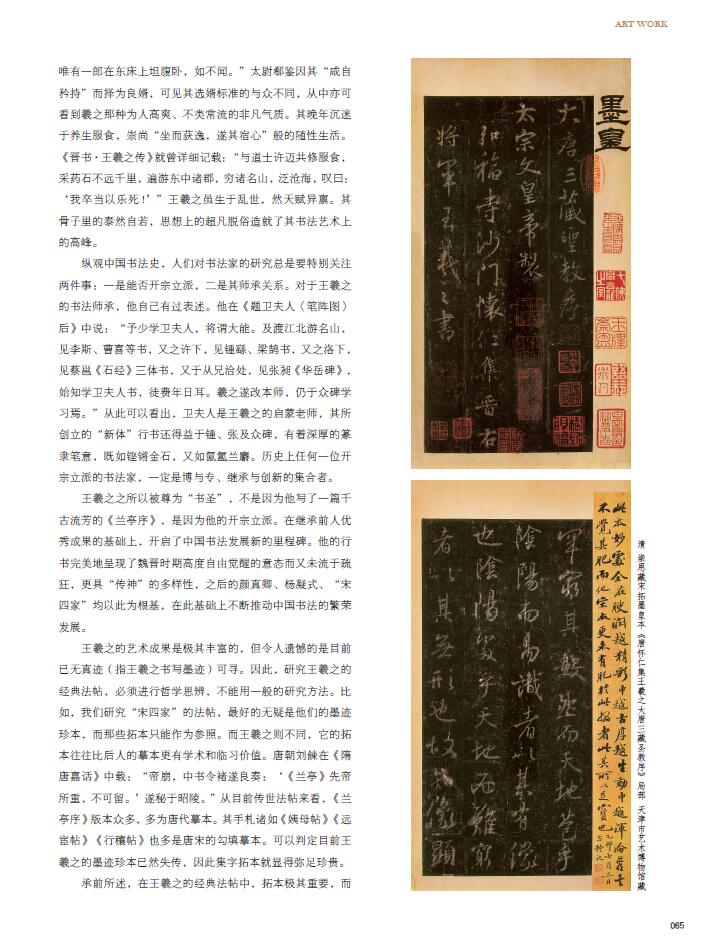 ART WORK
唯有一郎在东床上坦腹卧，如不闻。”太尉郗鉴因其“咸自
矜持”而择为良婿，可见其选婿标准的与众不同，从中亦可
看到羲之那种为人高爽、不类常流的非凡气质。其晚年沉迷
于养生服食，崇尚“坐而获逸，遂其宿心”般的随性生活。
《晋书·王羲之传》就曾详细记载：“与道士许迈共修服食，
采药石不远千里，遍游东中诸郡，穷诸名山，泛沧海，叹曰：
‘我卒当以乐死！’”王羲之虽生于乱世，然天赋异禀。其
骨子里的泰然自若，思想上的超凡脱俗造就了其书法艺术上
的高峰。
纵观中国书法史，人们对书法家的研究总是要特别关注
两件事：一是能否开宗立派，二是其师承关系。对于王羲之
的书法师承，他自己有过表述。他在《题卫夫人〈笔阵图〉
后》中说：“予少学卫夫人，将谓大能。及渡江北游名山，
见李斯、曹喜等书，又之许下，见锺繇、梁鹄书，又之洛下，
见蔡邕《石经》三体书，又于从兄洽处，见张昶《华岳碑》，
始知学卫夫人书，徒费年日耳。羲之遂改本师，仍于众碑学
习焉。”从此可以看出，卫夫人是王羲之的启蒙老师，其所
创立的“新体”行书还得益于锺、张及众碑，有着深厚的篆
隶笔意，既如铿锵金石，又如氤氲兰麝。历史上任何一位开
宗立派的书法家，一定是博与专、继承与创新的集合者。
王羲之之所以被尊为“书圣”，不是因为他写了一篇千
古流芳的《兰亭序》，是因为他的开宗立派。在继承前人优
秀成果的基础上，开启了中国书法发展新的里程碑。他的行
书完美地呈现了魏晋时期高度自由觉醒的意态而又未流于疏
狂，更具“传神”的多样性，之后的颜真卿、杨凝式、“宋
四家”均以此为根基，在此基础上不断推动中国书法的繁荣
发展。
王羲之的艺术成果是极其丰富的，但令人遗憾的是目前
已无真迹（指王羲之书写墨迹）可寻。因此，研究王羲之的
经典法帖，必须进行哲学思辨，不能用一般的研究方法。比
如，我们研究“宋四家”的法帖，最好的无疑是他们的墨迹
珍本，而那些拓本只能作为参照。而王羲之则不同，它的拓
本往往比后人的摹本更有学术和临习价值。唐朝刘餗在《隋
唐嘉话》中载：“帝崩，中书令褚遂良奏：‘《兰亭》先帝
所重，不可留。’遂秘于昭陵。”从目前传世法帖来看，《兰
亭序》版本众多，多为唐代摹本。其手札诸如《姨母帖》《远
宦帖》《行穰帖》也多是唐宋的勾填摹本。可以判定目前王
羲之的墨迹珍本已然失传，因此集字拓本就显得弥足珍贵。
承前所述，在王羲之的经典法帖中，拓本极其重要，而
墨皇
大唐三藏聖教序
太宗文皇帝製
弘福寺沙門懷仁集晉右
將軍王羲之書
此本妙處全在腴潤越精彩中越古厚越生動中越渾侖
不覺其肥而他宋本更未有肥於此搨者此其所以足寶也
罕窮其數然而天地苞乎
陰陽而易識者以其有像
也陰陽處乎天地而難窮
者以其無形也故知像顯
清 崇恩藏宋拓墨皇本《唐怀仁集王羲之大唐三藏圣教序》局部 天津市艺术博物馆藏
065